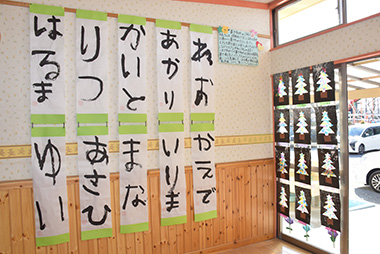 れお
あかり
かいと
りつ
はるま
かえで
いりま
まな
あさひ
ゆい